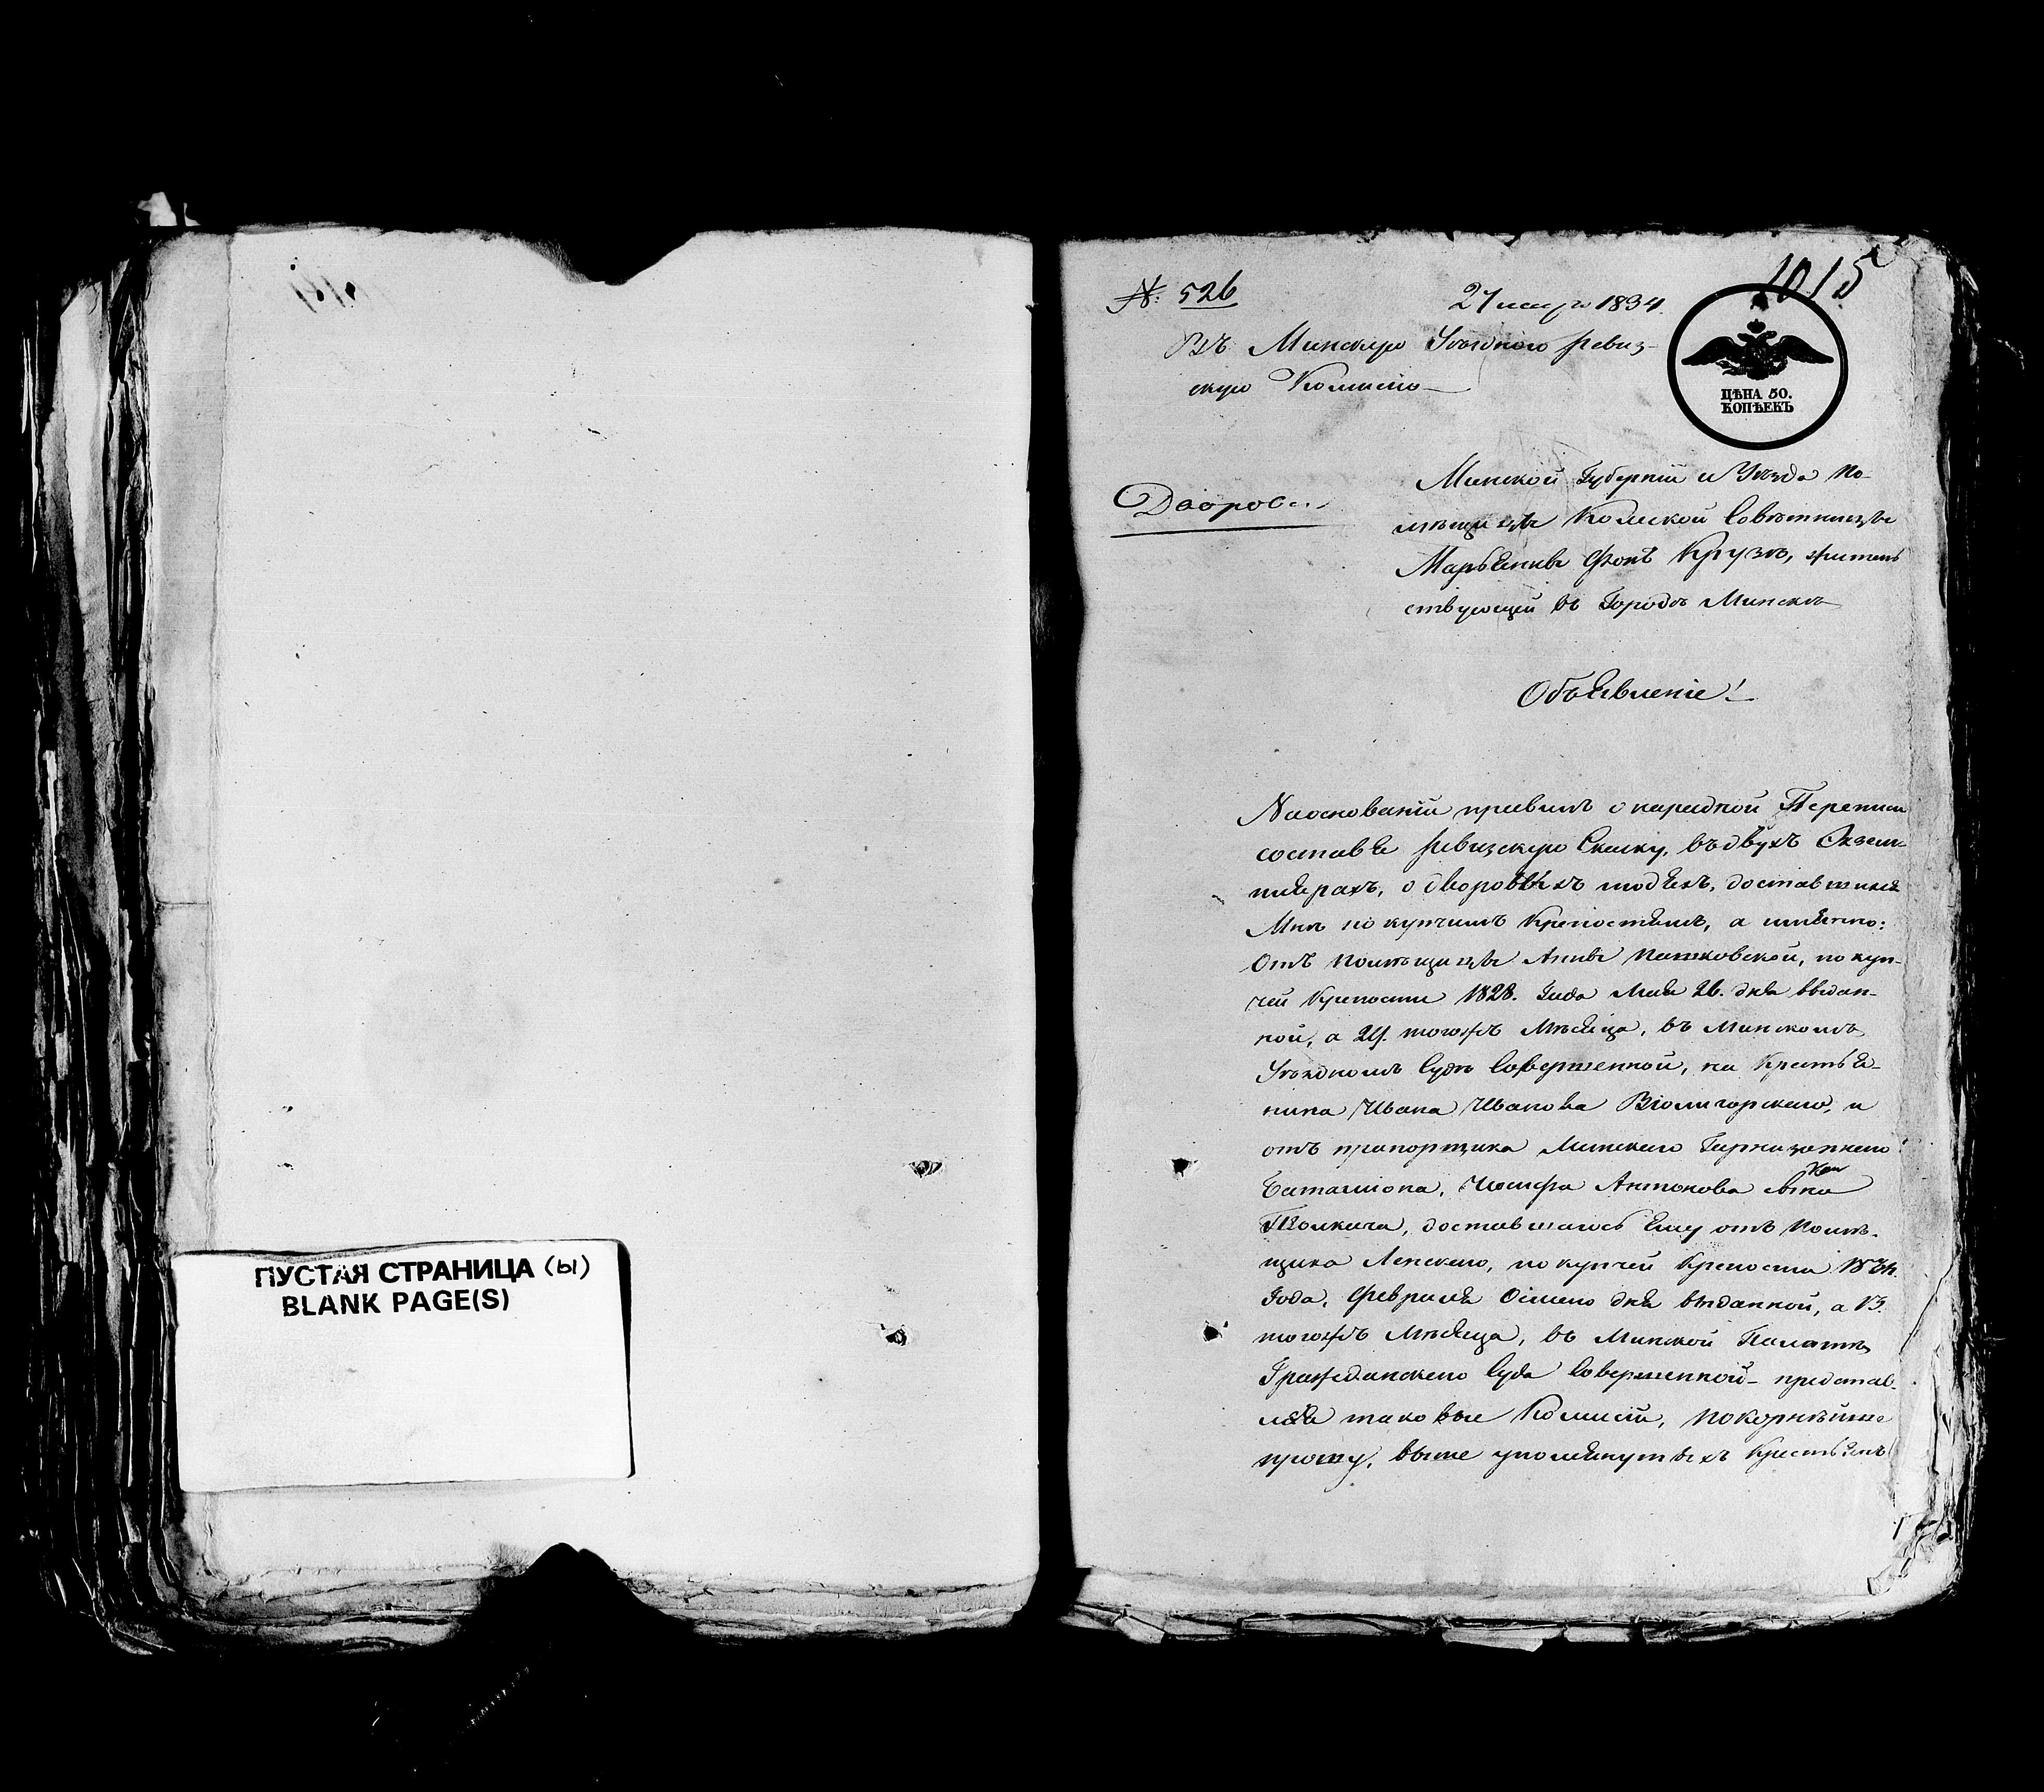 ПУСТАЯ СТРАНИЦА (ы)
BLANK PAGE(S)
№: 526
27 1834.
1015
Въ Минскую Уѣздного ревиз-
скую Комисію
ЦѢНА 50.
КОПѢЕКЪ
Дворов.
Минской Губерніи и Уѣзда По-
мѣщицы Колеской Совѣтницы
Марьянны Фонъ Крузъ, житель
ствующей въ Городѣ Минскѣ
Объявленіе!
Наоснованіи правилъ о народной Переписи
составя ревизскую Скаску, въдвухъ Экзем-
плярахъ, о дворовыхъ людяхъ, доставшихся
Мнѣ по купчимъ Крепостямъ, а имянно:
Отъ помѣщицы Анны, по куп-
чей Крепости 1828. Года Мая 26. дня выдан-
ной, а 29. тогожъ Мѣсяца, въ Минскомъ
Уѣздномъ Судѣ Совершенной, на Крестья-
нина Ивана Иванова, и
отъ прапорщика Минскаго Гарнизоннаго
Баталиона, Иосифа Антонова
доставшагось Ему отъ Помѣ-
щика Ленскаго, по купчей Крепости
Года, Февраля Осмаго дня выданной, а 13.
тогожъ Мѣсяца, въ Минской Палатѣ
Гражданскаго Суда Совершенной- представ-
ляя таковые Комисіи, покорнѣйше
прошу, выше упомянутыхъ Крестьянъ